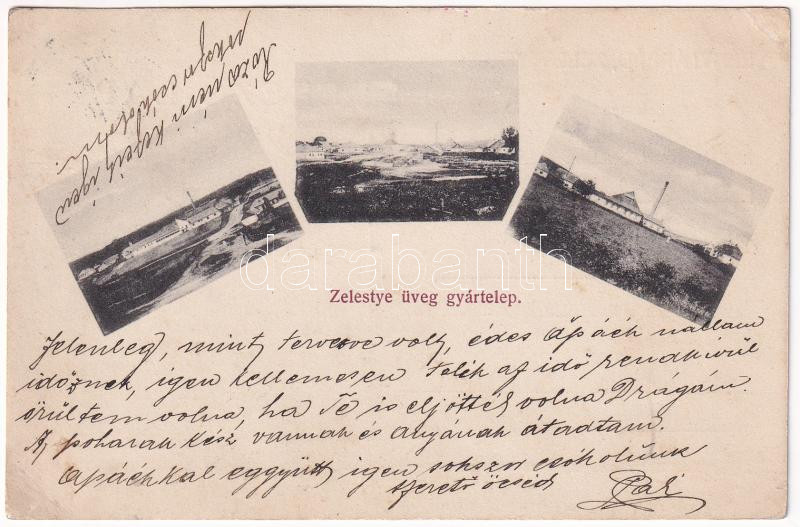 Róza néni képeit igen
sokszor csókolom.
darabanth
Zelestye üveg gyártelep.
Jelenleg, mint tervezve volt, édes Apáék nállam
időznek, igen kellemesen telik az idő rendkívül
örültem volna, ha Te is eljöttél volna Drágám.
A poharak kész vannak és anyának átadtam.
Apáékkal eggyütt igen sokszor csókolunk
szerető öcséd Pali